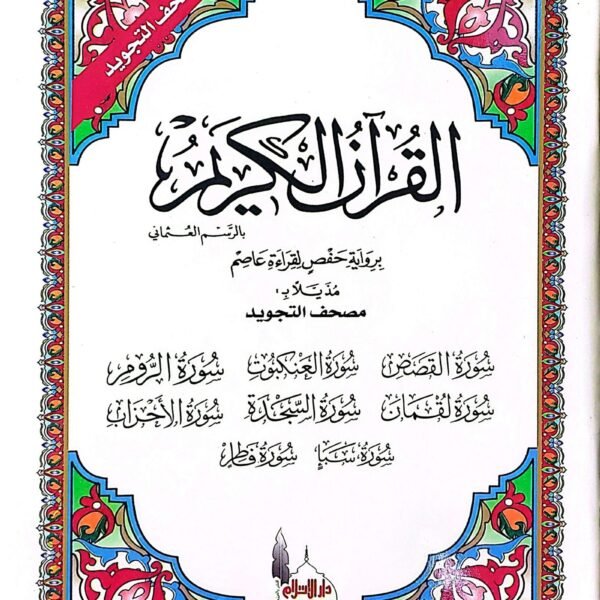 مصحف التجويد
القرآن الكريم
بالرسم العثماني
برواية حفص لقراءة عاصم
مذيلاً بـ:
مصحف التجويد
سُورَة القَصَص سُورَة العَنكبُوت سُورَة الرُّومِ
سُورَة لُقمَان سُورَة السَّجْدَة سُورَة الأَحْزَاب
سُورَة سَبَإ سُورَة فَاطِر
دار الإسلام